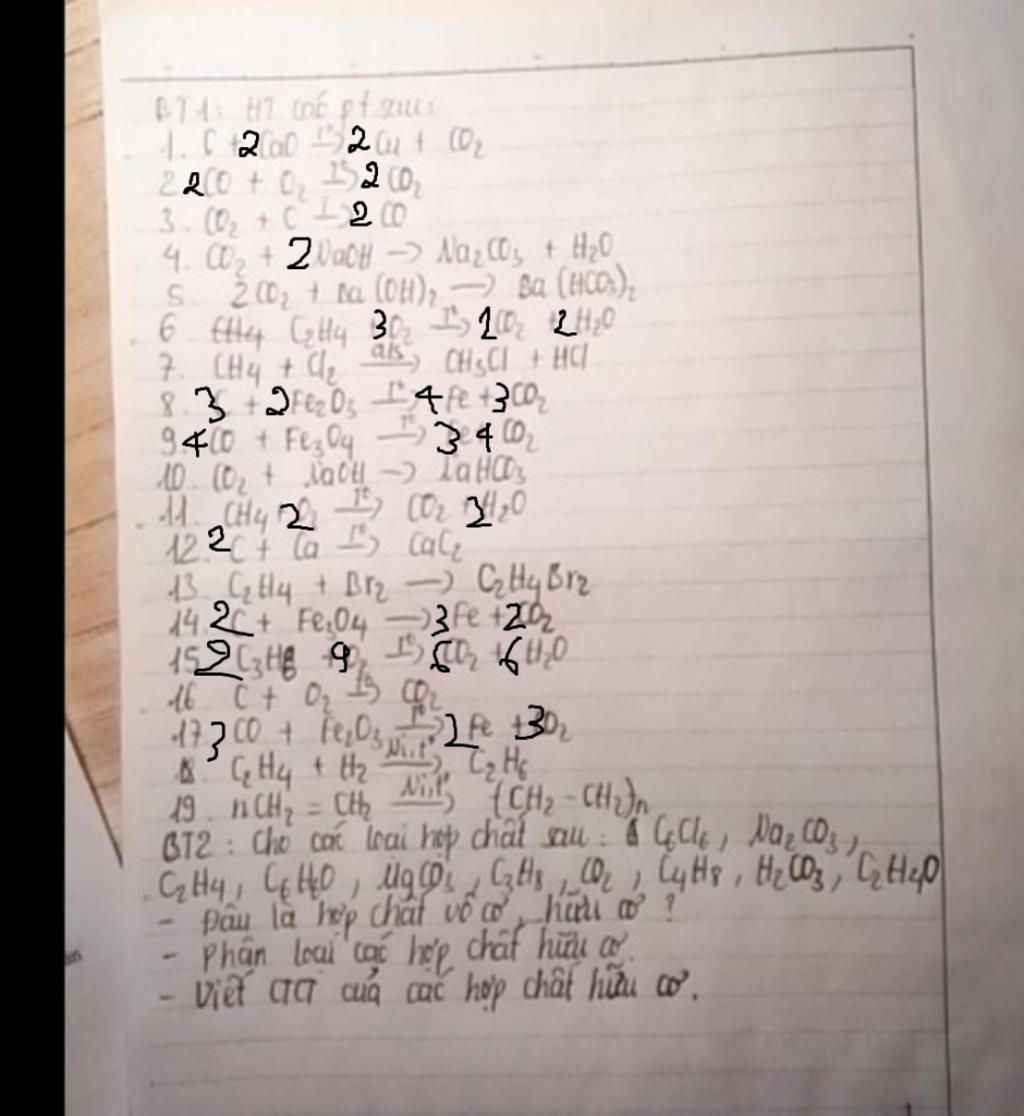 BT1: HT các pt sau:
1. C + 2CuO t°→ 2Cu + CO₂
2. 2CO + O₂ t°→ 2CO₂
3. CO₂ + C t°→ 2CO
4. CO₂ + 2NaOH → Na₂CO₃ + H₂O
5. 2CO₂ + Ba(OH)₂ → Ba(HCO₃)₂
6. C₂H₄ 3O₂ t°→ 2CO₂ 2H₂O
7. CH₄ + Cl₂ a/s→ CH₃Cl + HCl
8. 3C + 2Fe₂O₃ t°→ 4Fe + 3CO₂
9. 4CO + Fe₃O₄ t°→ 3 4CO₂
10. CO₂ + NaOH → NaHCO₃
11. CH₄ 2O₂ t°→ CO₂ 2H₂O
12. 2C + Ca t°→ CaC₂
13. C₂H₄ + Br₂ → C₂H₄Br₂
14. 2C + Fe₃O₄ → 3Fe + 2CO₂
15. 2C₃H₆ 9O₂ t°→ 6CO₂ + 6H₂O
16. C + O₂ t°→ CO₂
17. 3CO + Fe₂O₃ t°→ 2Fe + 3O₂
18. C₂H₄ + H₂ Ni,t°→ C₂H₆
19. nCH₂ = CH₂ Ni,t°→ (CH₂ - CH₂)n
BT2: Cho các loại hợp chất sau: C₆Cl₆, Na₂CO₃,
C₂H₄, MgCO₃, C₃H₈, CO₂, C₄H₈, H₂CO₃, C₂H₄O
- Đâu là hợp chất vô cơ, hữu cơ?
- Phân loại các hợp chất hữu cơ.
- Viết CTCT của các hợp chất hữu cơ.